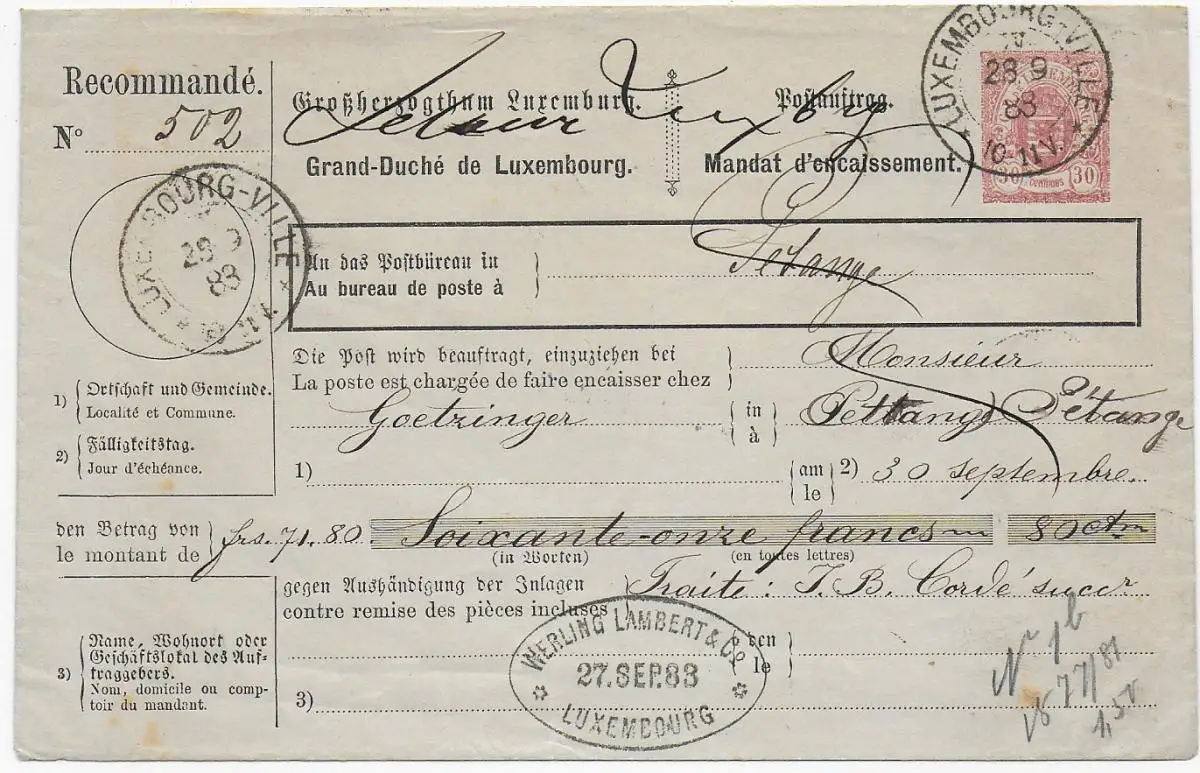 Recommandé.
N° 502
Großherzogthum Luxemburg. Postauftrag.
Retour Luxbg
Grand-Duché de Luxembourg. Mandat d'encaissement.
LUXEMBOURG-VILLE
28 9
83
10-11 V.
30 CENTIMES 30
LUXEMBOURG-VILLE
28 9
83
An das Postbüreau in
Au bureau de poste à
Pétange
Die Post wird beauftragt, einzuziehen bei
La poste est chargée de faire encaisser chez
Monsieur
Goetzinger in à Pettange Pétange
1) Ortschaft und Gemeinde.
Localité et Commune.
2) Fälligkeitstag.
Jour d'échéance.
1) am le 2) 30 septembre.
den Betrag von
le montant de
frs. 71.80. Soixante-onze francs 80 ctm
(in Worten) (en toutes lettres)
gegen Aushändigung der Inlagen
contre remise des pièces incluses
Traite: J. B. Cordé succr
3) Name, Wohnort oder
Geschäftslokal des Auf-
traggebers.
Nom, domicile ou comp-
toir du mandant.
den
le
3)
WERLING LAMBERT & Co
27. SEP. 83
LUXEMBOURG